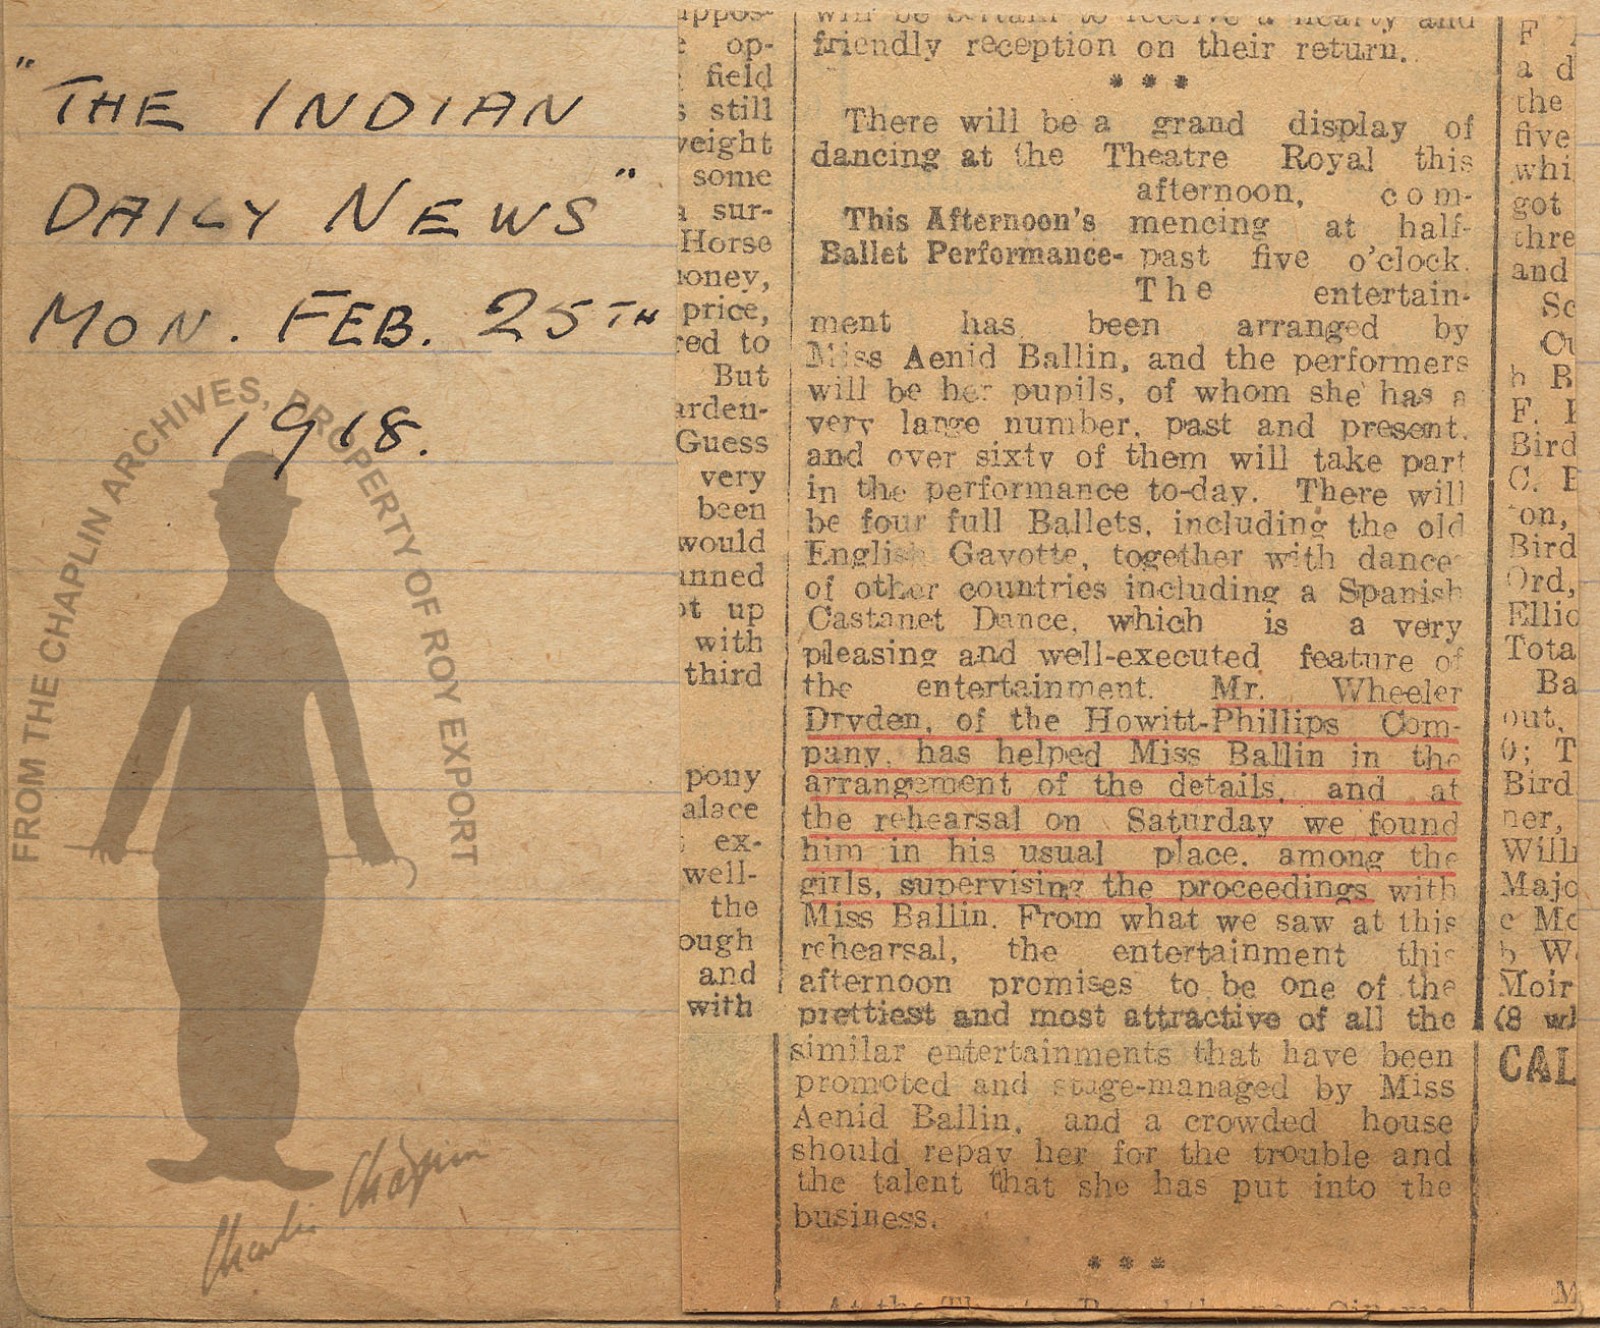 "THE INDIAN
DAILY NEWS"
MON. FEB. 25TH
1918.
FROM THE CHAPLIN ARCHIVES, PROPERTY OF ROY EXPORT
Charlie Chaplin
op-
field
still
some
sur-
Horse
price,
to
But
Guess
very
been
would
up
with
third
pony
ex-
well-
the
and
with
will be certain to receive a hearty and
friendly reception on their return.
* * *
There will be a grand display of
dancing at the Theatre Royal this
afternoon, com-
This Afternoon's mencing at half-
Ballet Performance- past five o'clock.
The entertain-
ment has been arranged by
Miss Aenid Ballin, and the performers
will be her pupils, of whom she has a
very large number, past and present,
and over sixty of them will take part
in the performance to-day. There will
be four full Ballets, including the old
English Gavotte, together with dance
of other countries including a Spanish
Castanet Dance, which is a very
pleasing and well-executed feature of
the entertainment. Mr. Wheeler
Dryden, of the Howitt-Phillips Com-
pany, has helped Miss Ballin in the
arrangement of the details, and at
the rehearsal on Saturday we found
him in his usual place, among the
girls, supervising the proceedings with
Miss Ballin. From what we saw at this
rehearsal, the entertainment this
afternoon promises to be one of the
prettiest and most attractive of all the
similar entertainments that have been
promoted and stage-managed by Miss
Aenid Ballin, and a crowded house
should repay her for the trouble and
the talent that she has put into the
business.
* * *
F
a d
the
five
whi
got
thre
and
Bird
on,
Bird
Ord,
Tota
Ba
out,
Bird
ner,
Moir
(8
CAL